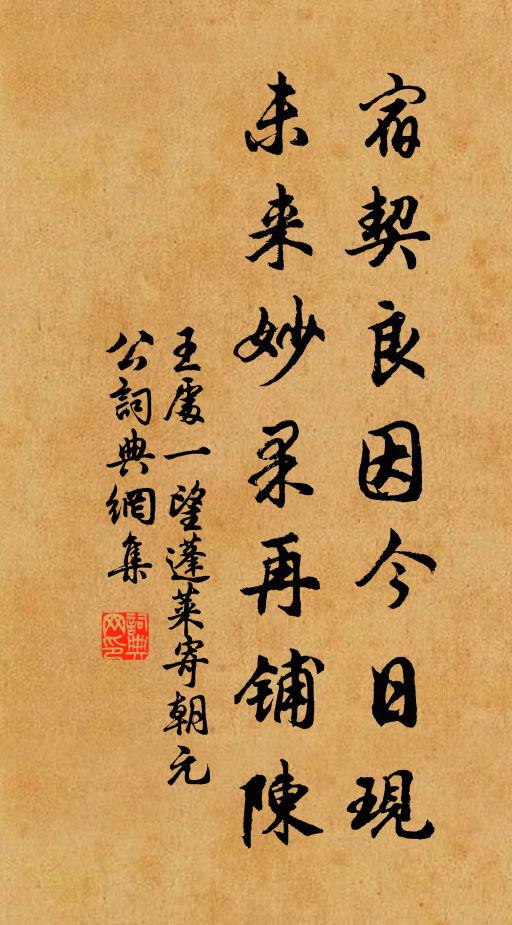 宿契良因今日現
未来妙果再铺陳
王處一望蓬萊寄朝元
公詞典網集
詞典网印